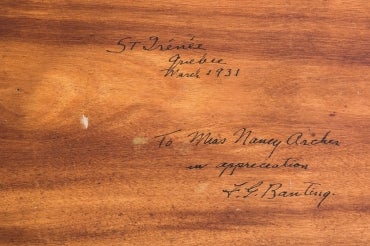 St Irénée
Quebec
March 1931
To Miss Nancy Archer
in appreciation
F. G. Banting.